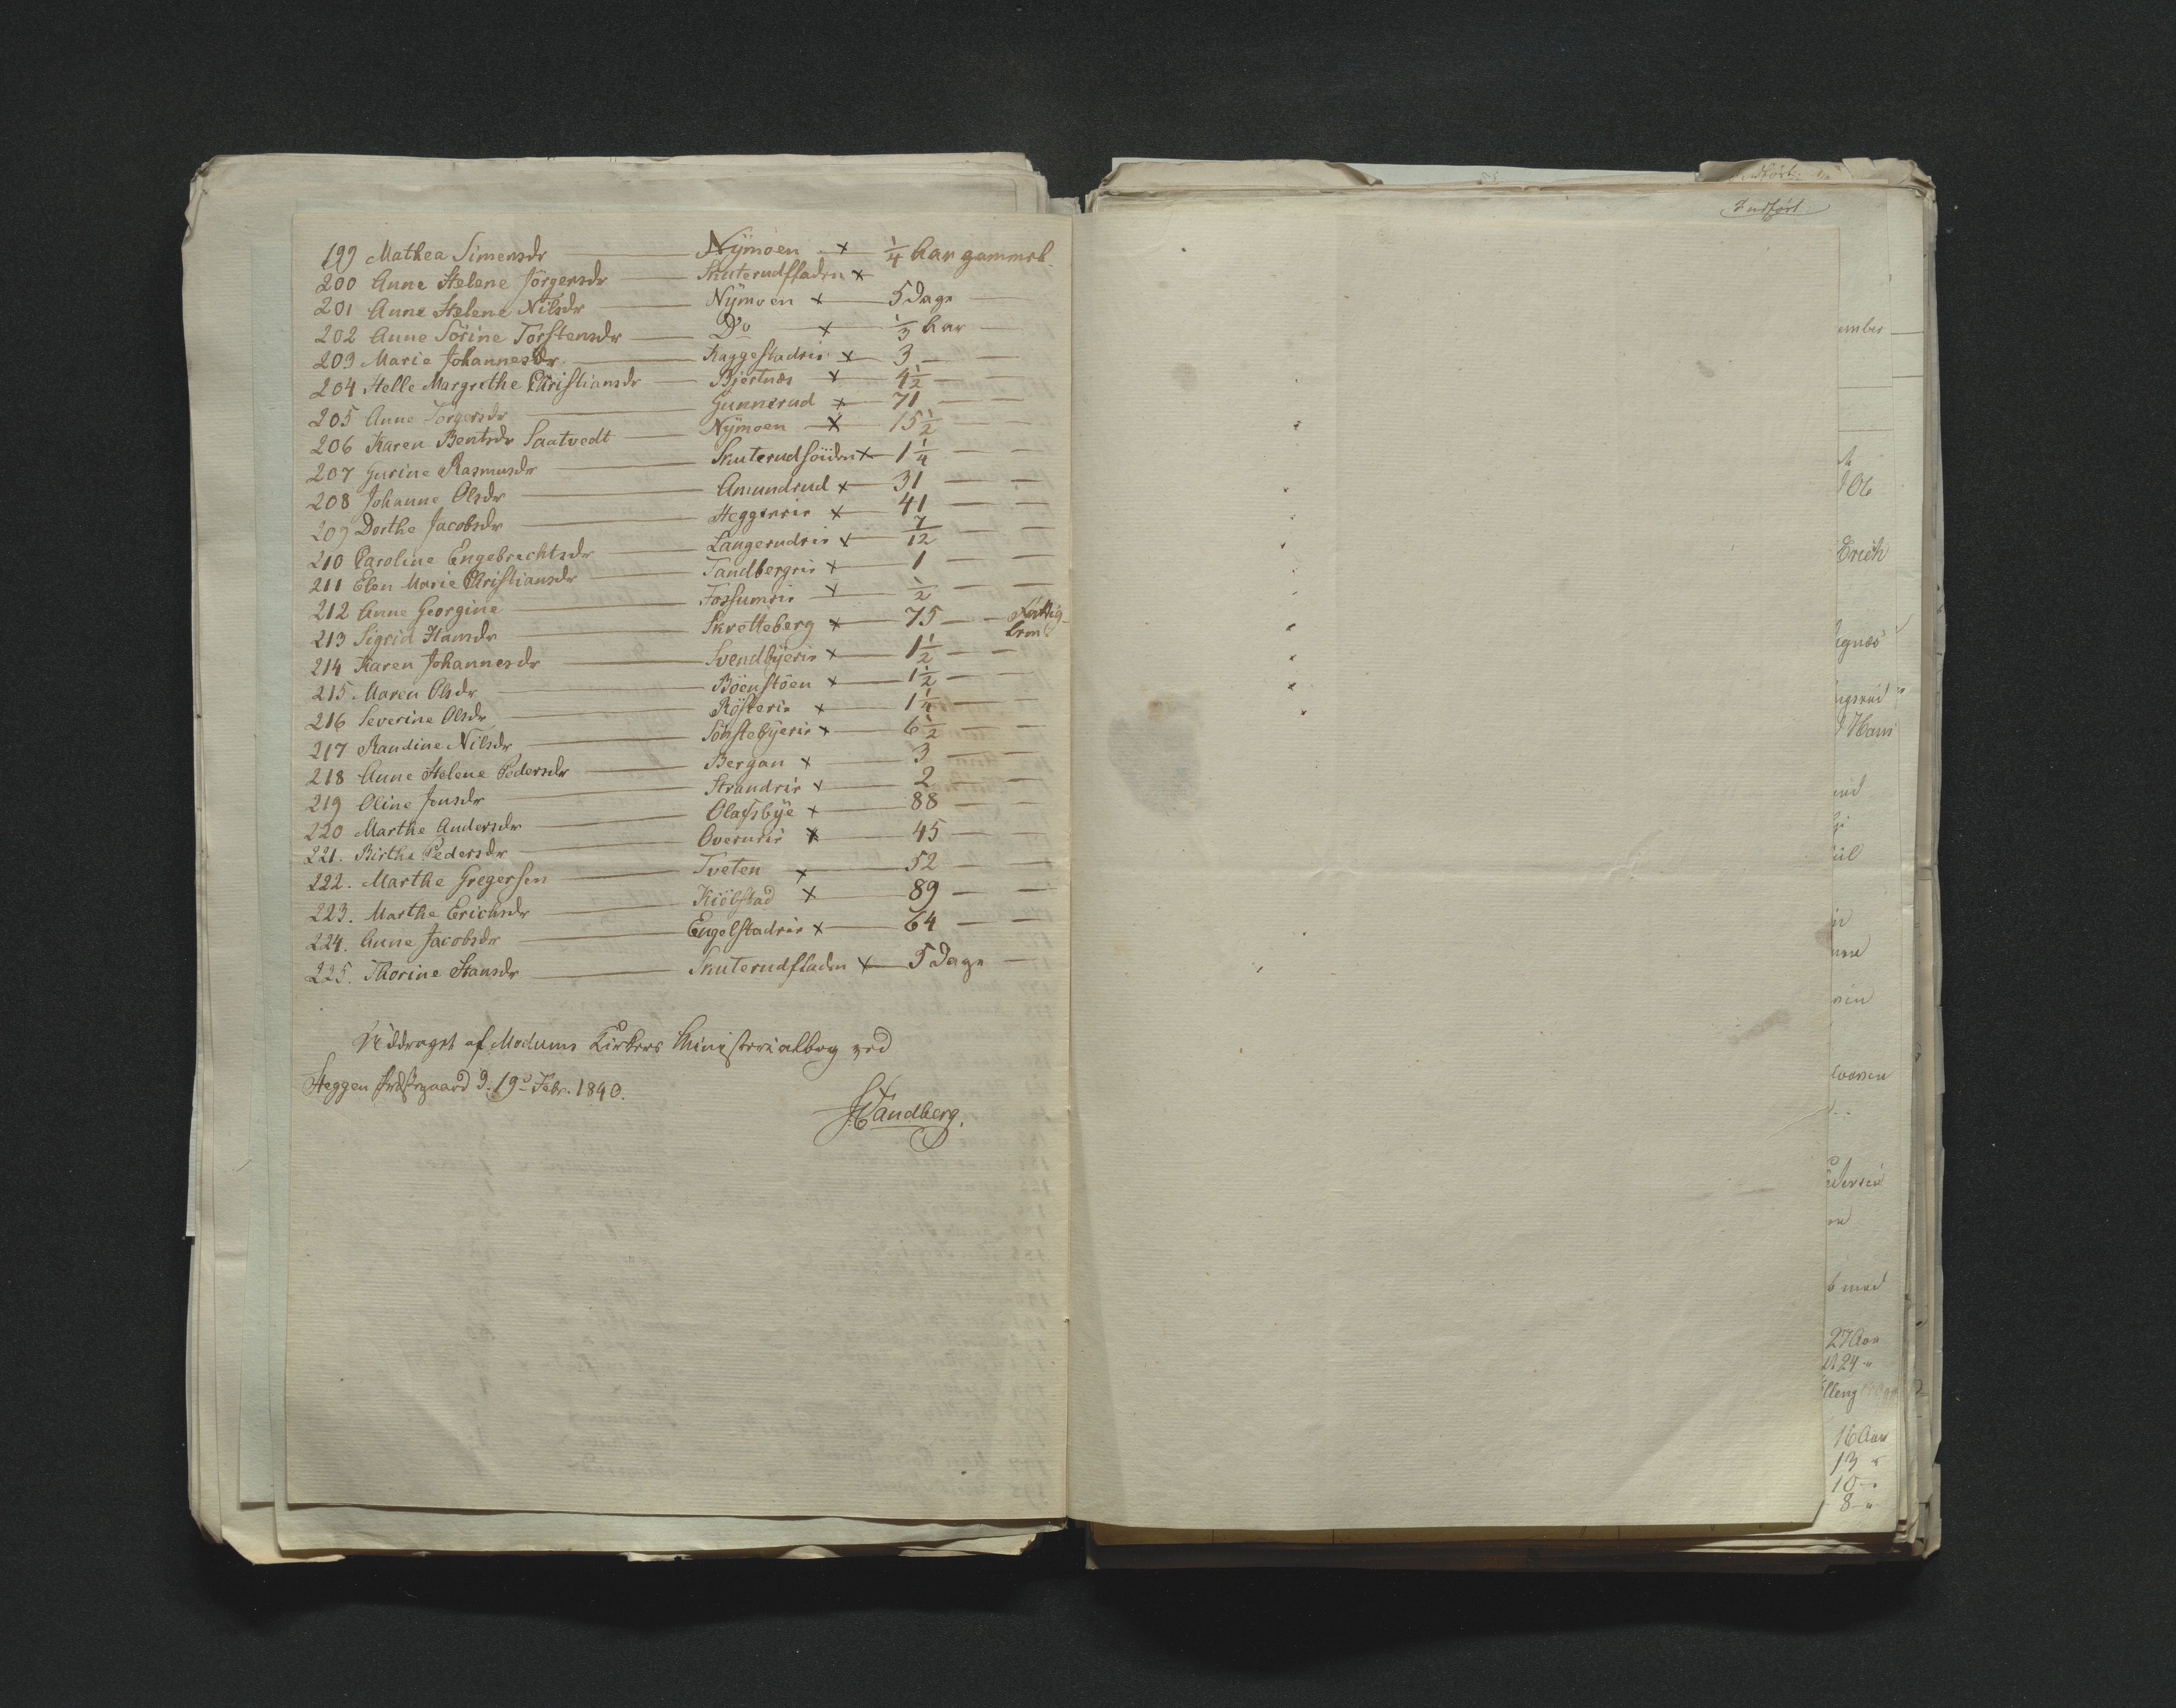 199 Mathea Simensdr — Nÿmoen x ¼ Aar gammel
200 Anne Helene Jörgensdr — Skuterudfladen x
201 Anne Helene Nilsdr — Nÿmoen x — 5 Dage
202 Anne Sörine Torstensdr — Do x ⅓ Aar —
203 Marie Johannesdr — Kaggestadrie x — 3 — —
204 Helle Margrethe Christiansdr — Bjertnæs x 4½ — —
205 Anne Torgersdr — Gunnerud x — 71 — —
206 Karen Bentsdr Saatvedt — Nÿmoen x — 15½ — —
207 Gurine Rasmusdr — Skuterudföiden x — 1¼ — —
208 Johanne Olsdr — Amundrud x — 31 — —
209 Dorthe Jacobsdr — Heggenrie x — 41 — —
210 Caroline Engebrechtsdr — Langerudrie x — 7/12 — —
211 Elen Marie Christiansdr — Tandbergrie x — 1 — —
212 Anne Georgine — Fossumrie x — ½ — —
213 Sigrid Hansdr — Skretteberg x — 75 — — Fattig-
lem
214 Karen Johannesdr — Svendbÿerie x — 1½ — —
215. Maren Olsdr — Böenstöen x — 1½ — —
216 Severine Olsdr — Rösterie x — 1¼ — —
217 Randine Nilsdr — Sönstebÿerie x — 6½ — —
218 Anne Helene Pedersdr — Bergan x — 3 — —
219 Oline Jensdr — Strandrie x — 2 — —
220 Marthe Andersdr — Olafsbÿe x — 88 — —
221. Birthe Pedersdr — Overnrie x — 45 — —
222. Marthe Gregersen — Tveten x — 52 — —
223. Marthe Erichsdr — Kiölstad x — 89 — —
224. Anne Jacobsdr — Engelstadrie x — 64 — —
225. Thorine Hansdr — Skuterudfladen x — 5 Dage —
Uddraget af Modums Kirkers Ministerialbog ved
Heggen Præstegaard d. 19d Febr. 1840.
H Tandberg.
Indført
ember
Ole
Erich
gnæs
Hans
Pedersen
med
27 Aar
24 "
16 Aar
13 "
10 "
8 "